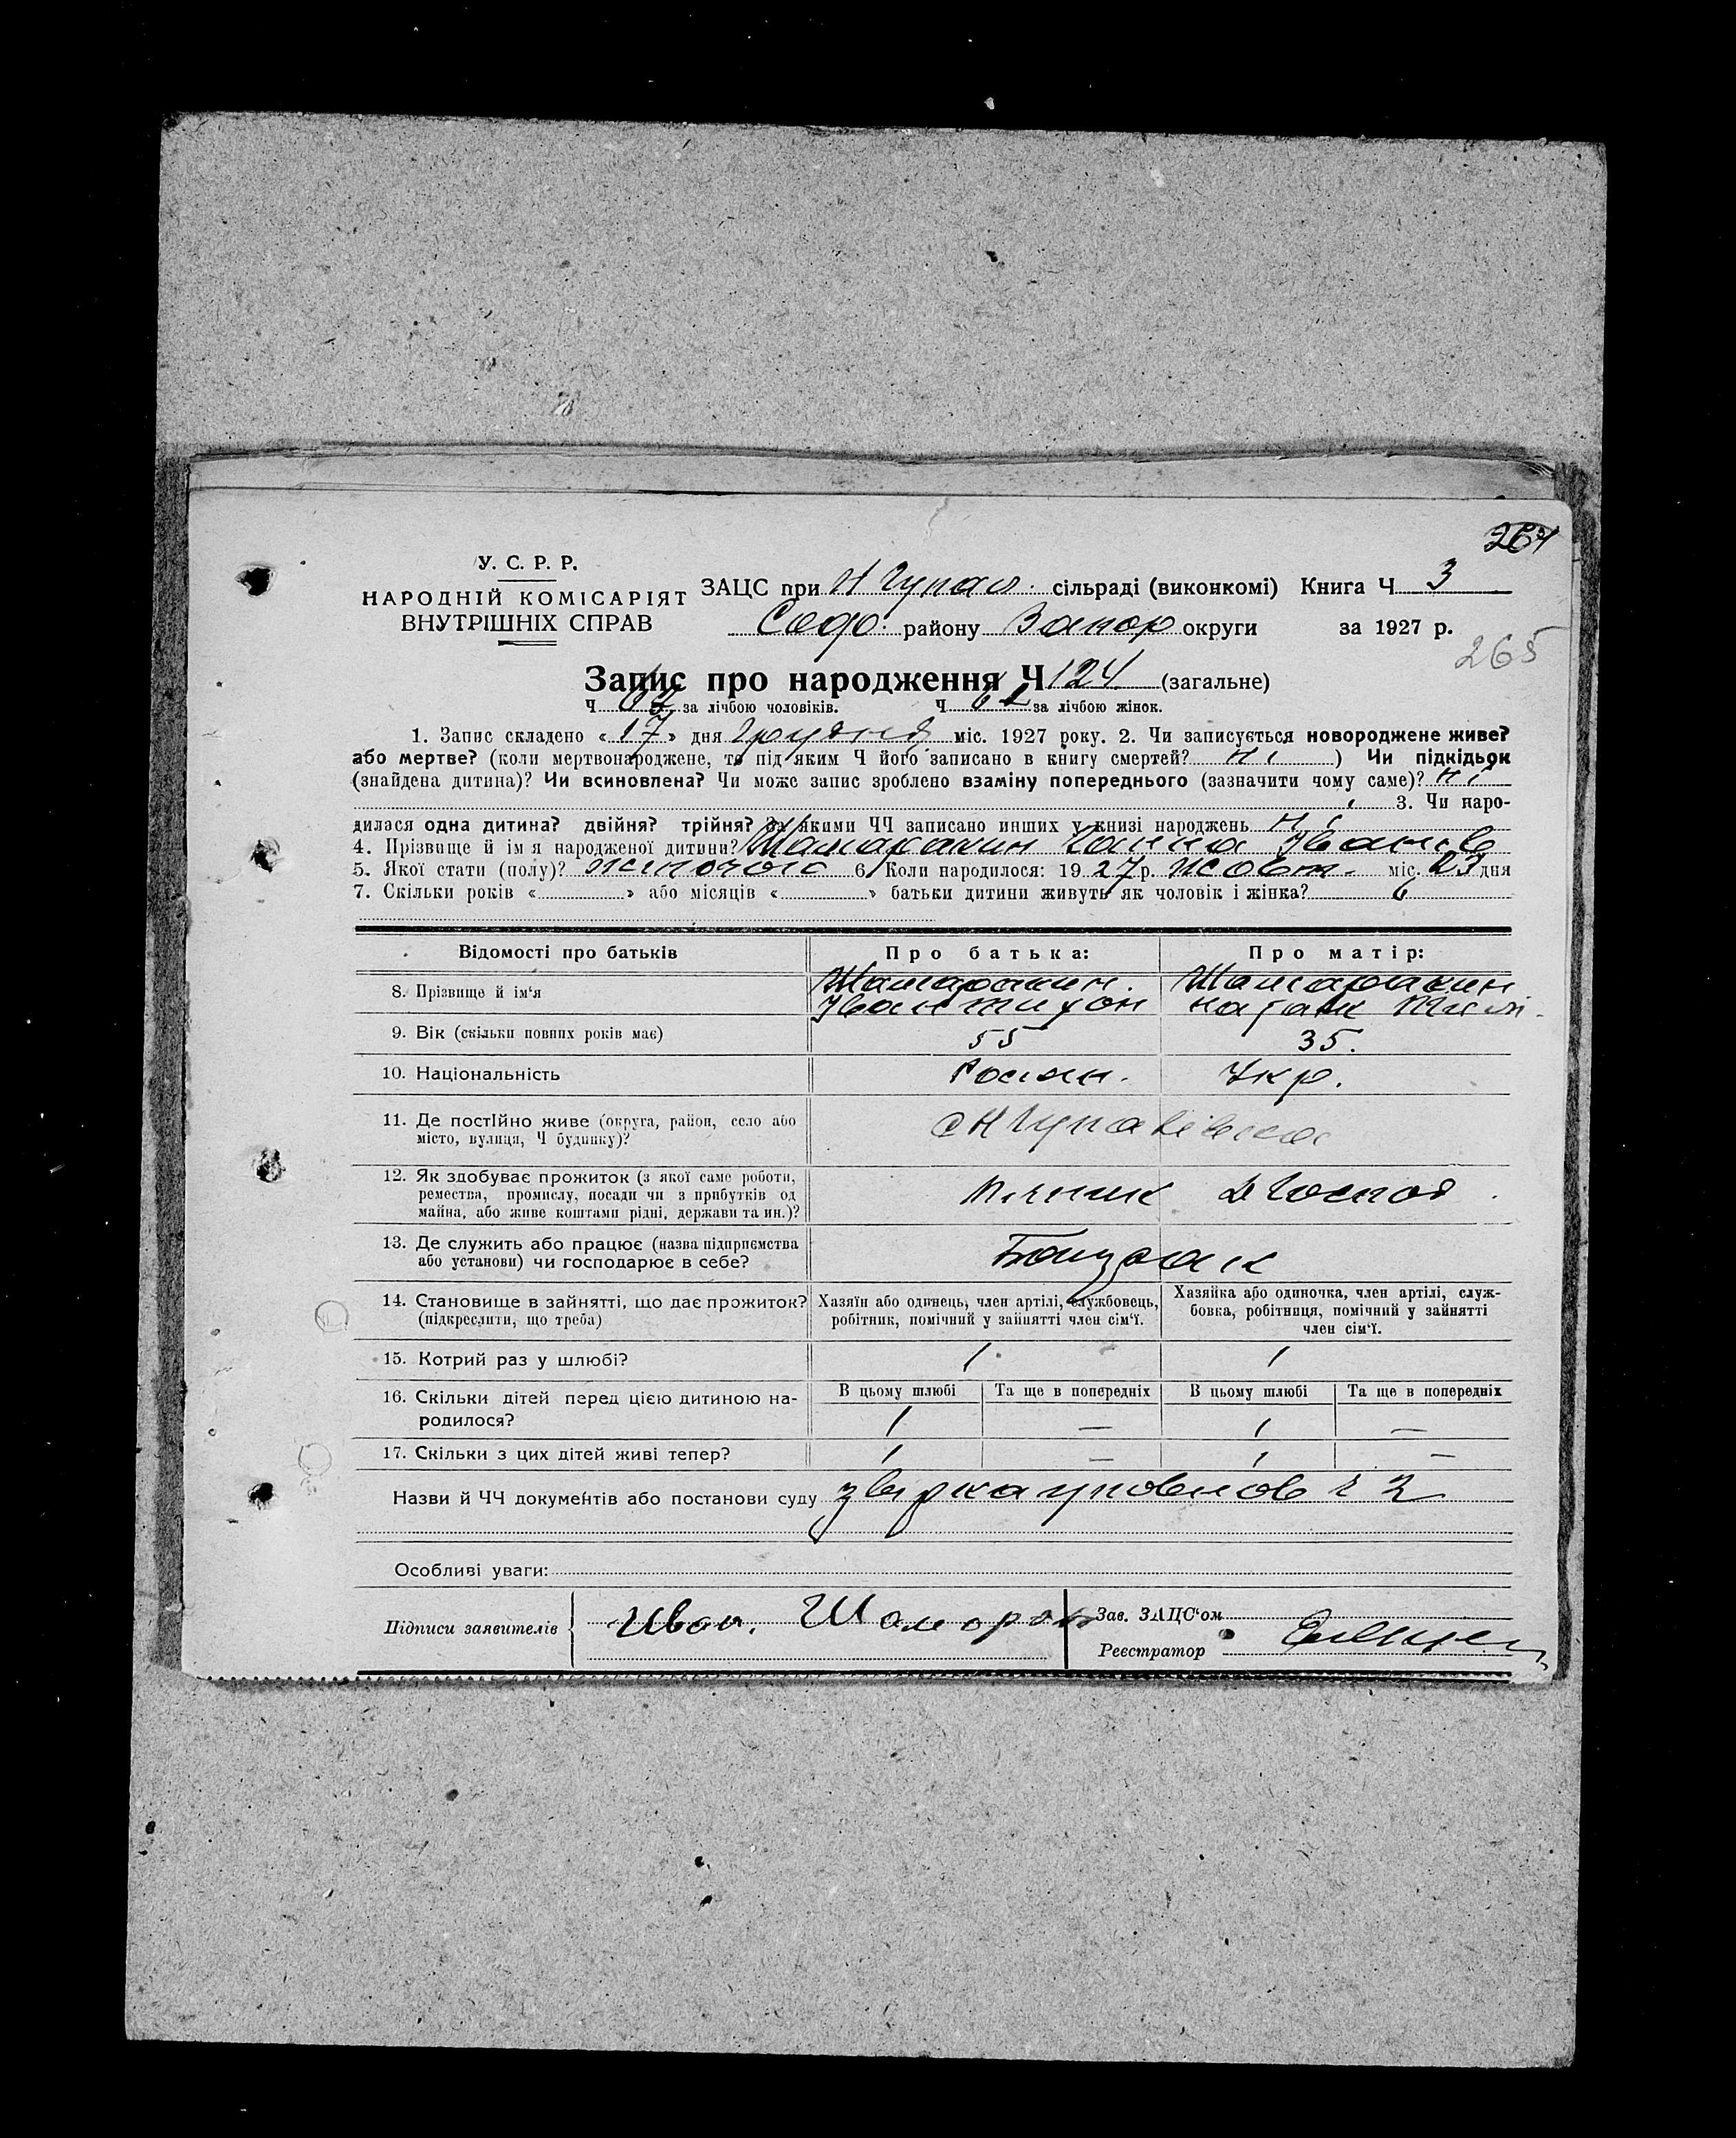 264
У. С. Р. Р.
НАРОДНІЙ КОМІСАРІЯТ
ВНУТРІШНІХ СПРАВ
ЗАЦС при сільраді (виконкомі) Книга Ч 3
району Запор округи за 1927 р.
265
Запис про народження Ч 124 (загальне)
Ч за лічбою чоловіків. Ч 62 за лічбою жінок.
1. Запис складено « 17 » дня Грудня міс. 1927 року. 2. Чи записується новороджене живе?
або мертве? (коли мертвонароджене, то під яким Ч його записано в книгу смертей? ні ) Чи підкідьок
(знайдена дитина)? Чи всиновлена? Чи може запис зроблено взаміну попереднього (зазначити чому саме)? ні
3. Чи наро-
дилася одна дитина? двійня? трійня? За якими ЧЧ записано инших у книзі народжень ні
4. Прізвище й ім'я народженої дитини? Ганна Іванів
5. Якої стати (полу)? жіночої 6. Коли народилося: 19 27 р. жовт. міс. 23 дня
7. Скільки років « » або місяців « » батьки дитини живуть як чоловік і жінка?
Відомості про батьків Про батька: Про матір:
8. Прізвище й ім'я
Іван Тихон
9. Вік (скільки повних років має) 55 35.
10. Національність Росіян. Укр.
11. Де постійно живе (округа, район, село або
місто, вулиця, Ч будинку)?
12. Як здобуває прожиток (з якої саме роботи,
ремества, промислу, посади чи з прибутків од
майна, або живе коштами рідні, держави та ин.)?
Д Господ
13. Де служить або працює (назва підприємства
або установи) чи господарює в себе?
14. Становище в зайнятті, що дає прожиток?
(підкреслити, що треба)
Хазяїн або одинець, член артілі, службовець,
робітник, помічний у зайнятті член сім'ї.
Хазяйка або одиночка, член артілі, служ-
бовка, робітниця, помічний у зайнятті
член сім'ї.
15. Котрий раз у шлюбі? 1 1
16. Скільки дітей перед цією дитиною на-
родилося?
В цьому шлюбі Та ще в попередніх В цьому шлюбі Та ще в попередніх
1 — 1 —
17. Скільки з цих дітей живі тепер? 1 — 1 —
Назви й ЧЧ документів або постанови суду 2
Особливі уваги:
Підписи заявителів Иван. Шамаран
Зав. ЗАЦС'ом
Реєстратор